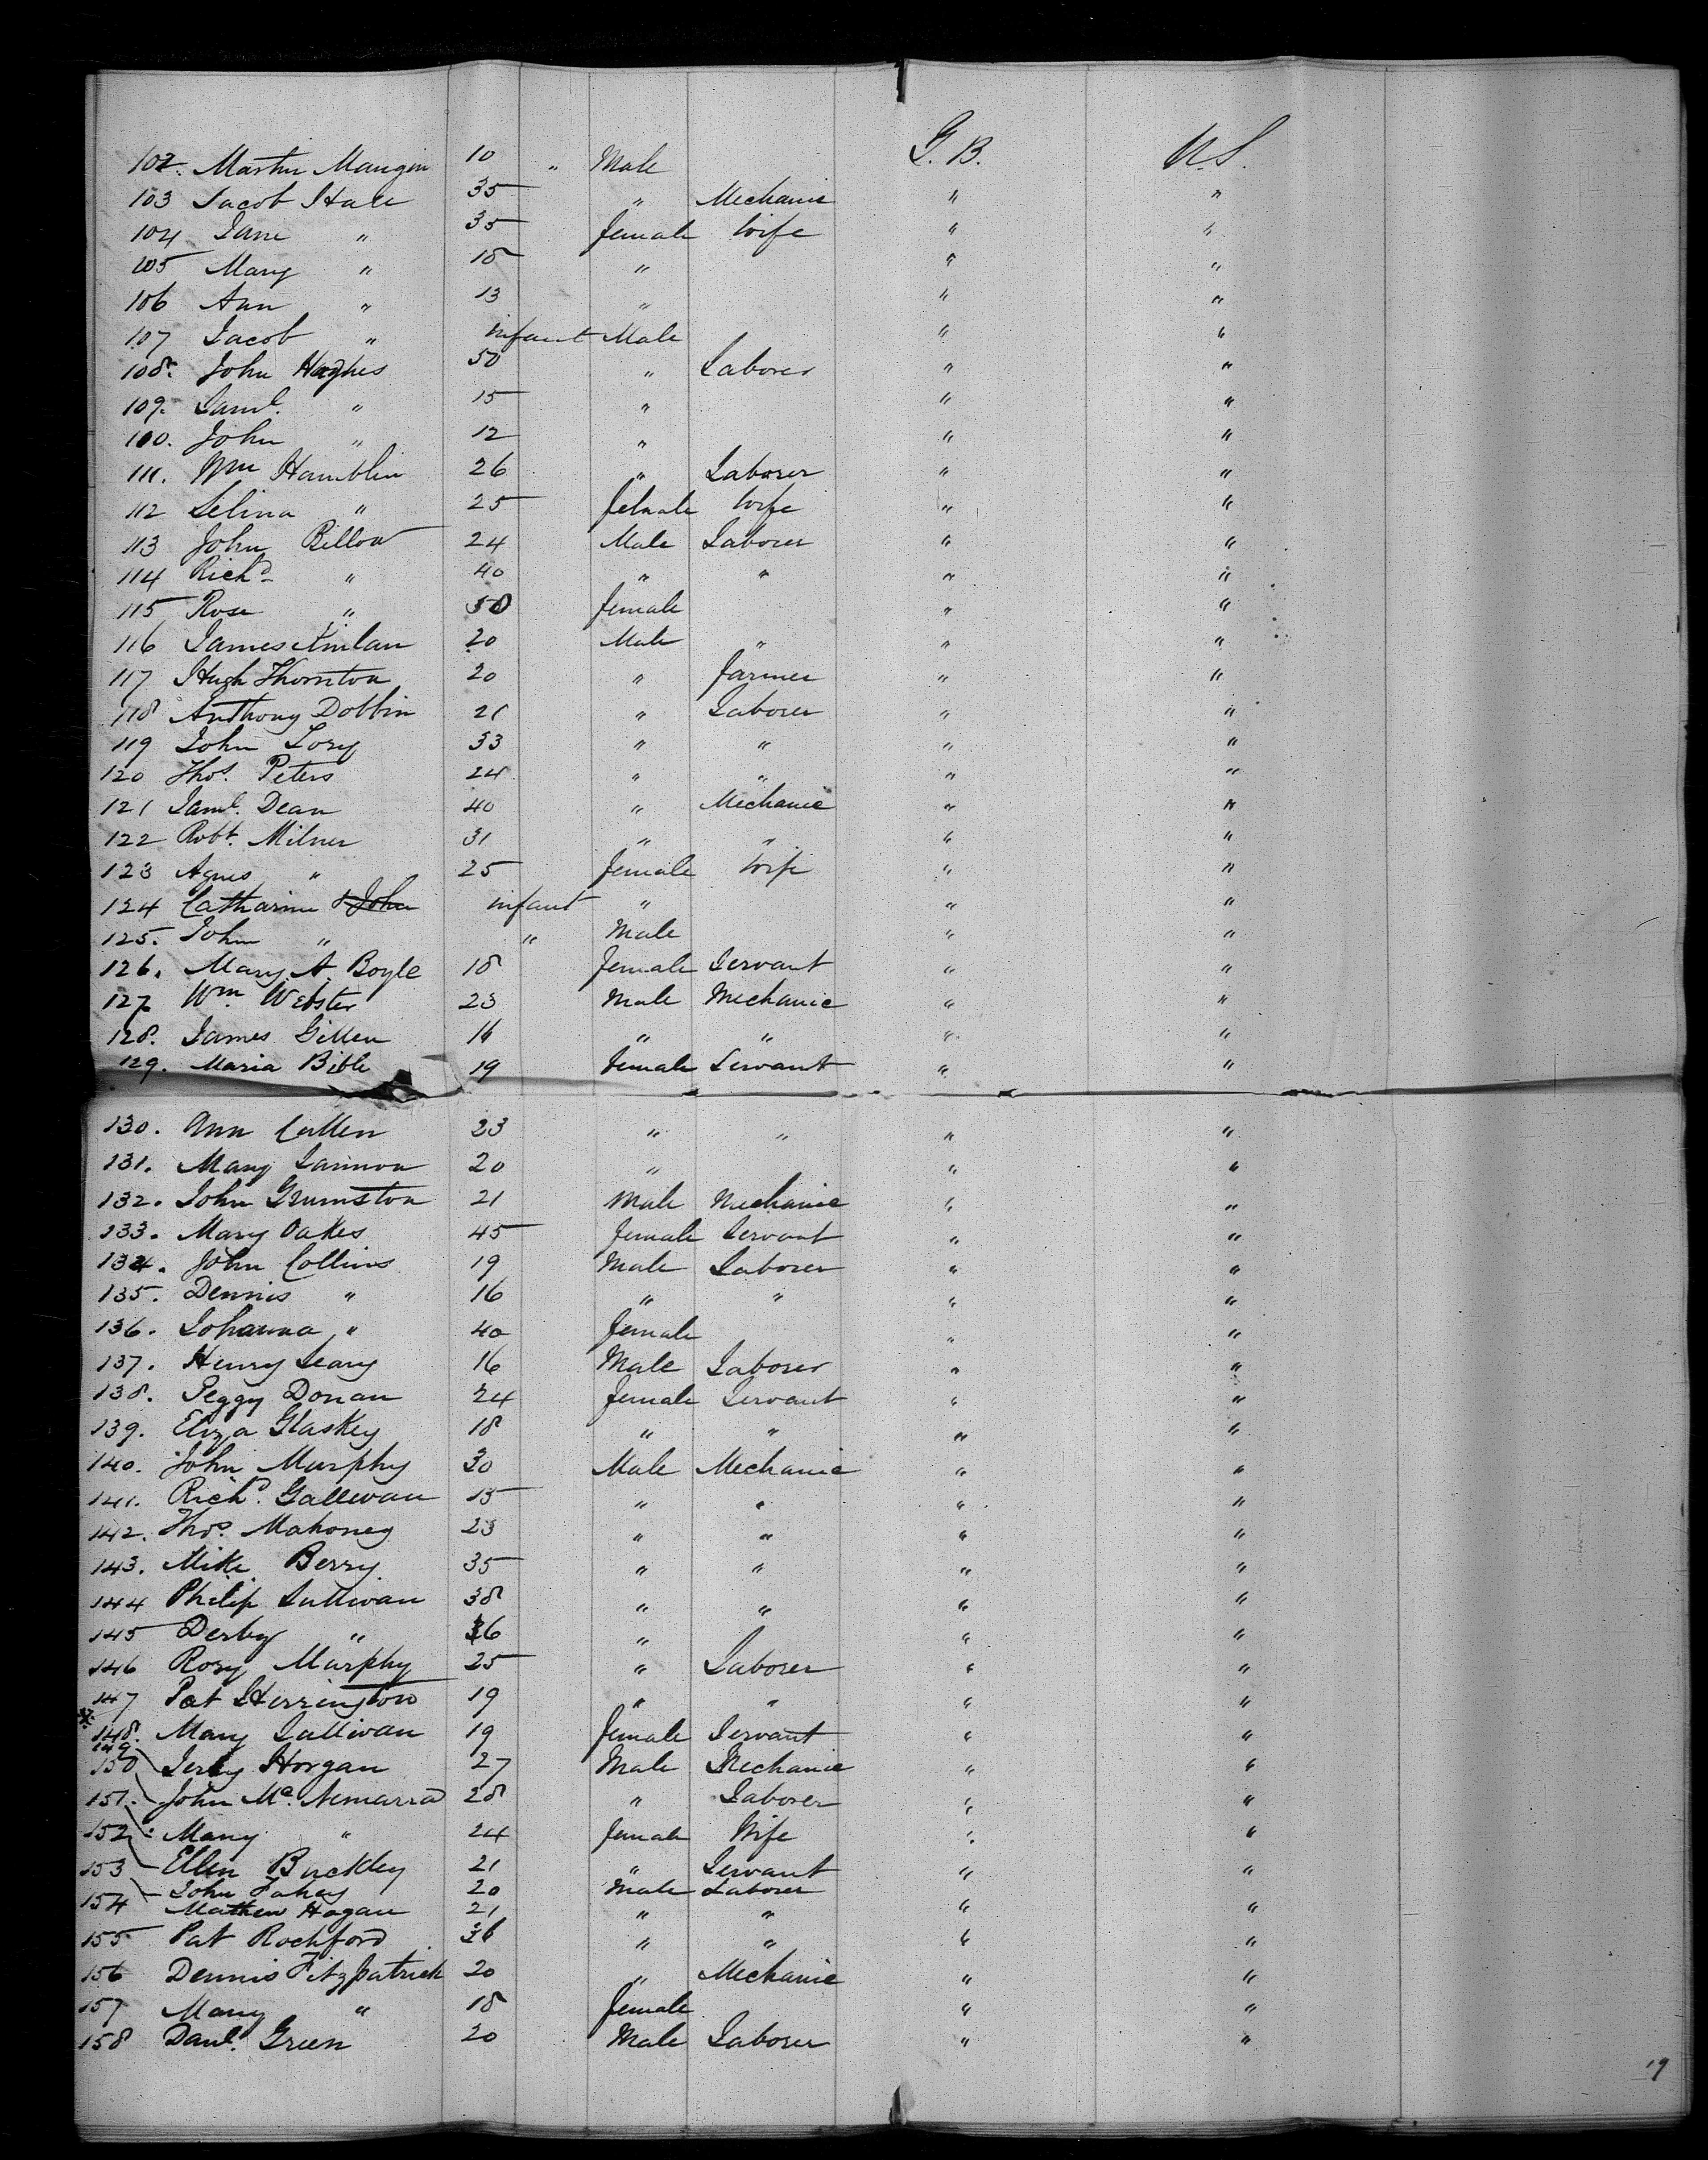 102. Martin Mangin 10 " Male G. B. U.S.
103 Jacob Hale 35 " Mechanic " "
104 Jane " 35 female Wife " "
105 Mary " 18 " " "
106 Ann " 13 " " "
107 Jacob " infant Male " "
108. John Hughes 50 " Laborer " "
109. Saml. " 15 " " "
110. John " 12 " " "
111. Wm Hamblin 26 " Laborer " "
112 Selina " 25 female Wife " "
113 John Billow 24 Male Laborer " "
114 Richd " 40 " " " "
115 Rose " 50 female " "
116 James 20 Male " " "
117 Hugh Thornton 20 " farmer " "
118 Anthony Dobbin 21 " Laborer " "
119 John Lory 33 " " " "
120 Thos. Peters 24 " " " "
121 Saml. Dean 40 " Mechanic " "
122 Robt. Milner 31 " " " "
123 Agnes " 25 female Wife " "
124 Catharine & John infant " " "
125. John " " Male " "
126. Mary A Boyle 18 female Servant " "
127 Wm. Webster 23 Male Mechanic " "
128. James Gillen 16 " " " "
129. Maria Bible 19 female Servant " "
130. Ann Cullen 23 " " " "
131. Mary Lannon 20 " " "
132. John Grumston 21 Male Mechanic " "
133. Mary Oakes 45 female Servant " "
134. John Collins 19 Male Laborer " "
135. Dennis " 16 " " " "
136. Johanna " 40 female " "
137. Henry Leary 16 Male Laborer " "
138. Peggy Donan 24 female Servant " "
139. Eliza Glaskey 18 " " " "
140. John Murphy 30 Male Mechanic " "
141. Richd. Gallewan 15 " " " "
142. Thos. Mahoney 23 " " " "
143. Mike Berry 35 " " " "
144 Philip Sullivan 38 " " " "
145 Derby " 36 " " "
146 Rory Murphy 25 " Laborer " "
147 Pat Herrington 19 " " " "
148. Mary Sullivan 19 female Servant " "
149
150 Jerry Horgan 27 Male Mechanic " "
151. John Mc. Nemarra 28 " Laborer " "
152 Mary " 24 female Wife " "
153 Ellen Buckley 21 " Servant " "
John Fahey 20 Male Laborer
154 Mathew Hogan 21 " " " "
155 Pat Rochford 36 " " " "
156 Dennis Fitzpatrick 20 " Mechanic " "
157 Mary " 18 female " "
158 Danl. Green 20 Male Laborer " "
19